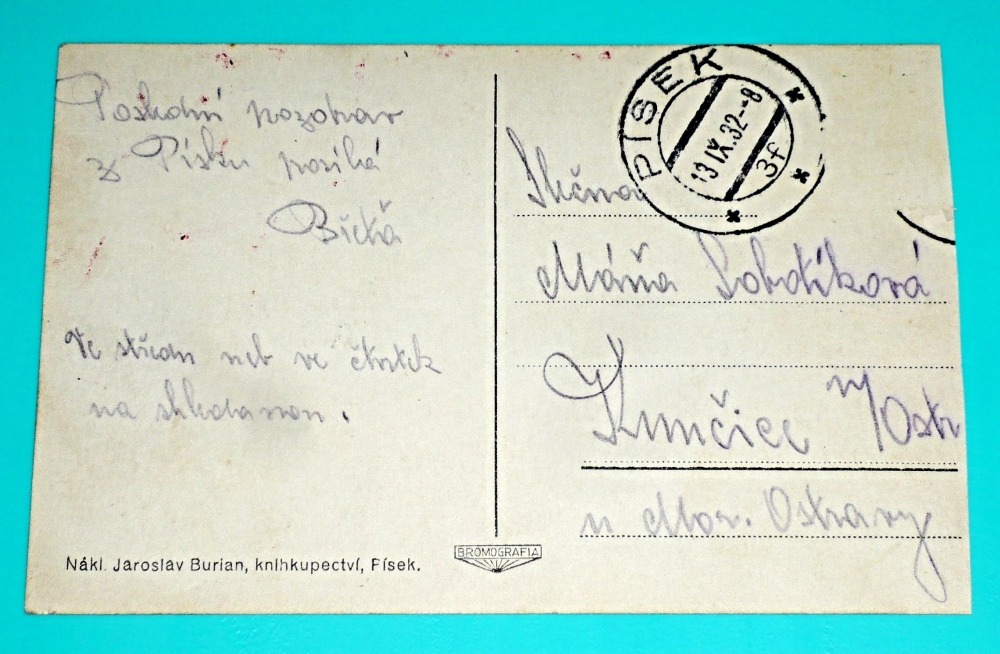 Poslední pozdrav
z Písku posílá
Ve středu neb ve čtvrtek
na shledanou.
Nákl. Jaroslav Burian, knihkupectví, Písek.
BROMOGRAFIA
PÍSEK
13 IX. 32 -8
3f
Slečna
Máňa Sobotíková
Kunčice n/Ostr
u Mor. Ostravy